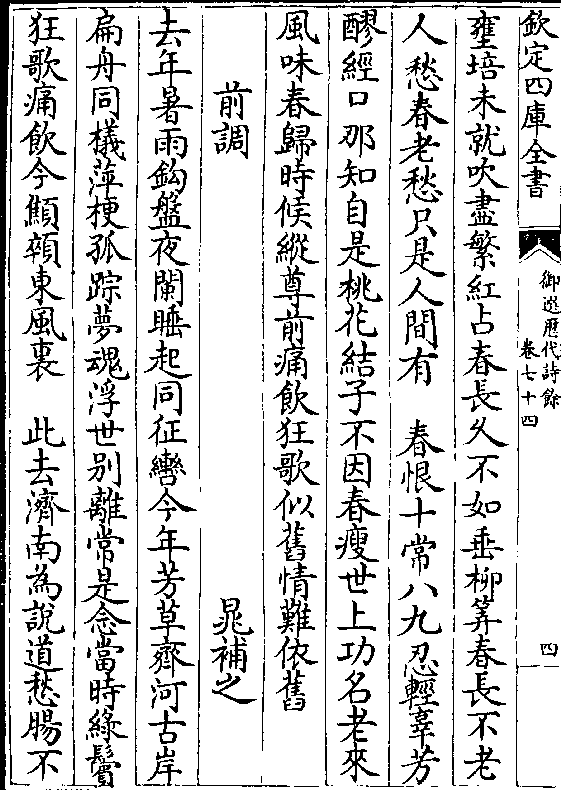 欽定四庫全書
御選歷代詩餘
卷七十四
四
壅培未就吹盡繁紅占春長久不如垂柳筭春長不老
人愁春老愁只是人間有　春恨十常八九忍輕辜芳
醪經口那知自是桃花結子不因春瘦世上功名老來
風味春歸時候縱尊前痛飲狂歌似舊情難依舊
前調　晁補之
去年暑雨鈎盤夜闌睡起同征轡今年芳草齊河古岸
扁舟同檥萍梗孤踪夢魂浮世别離常是念當時緑鬢
狂歌痛飲今顦顇東風裏　此去濟南為説道愁腸不